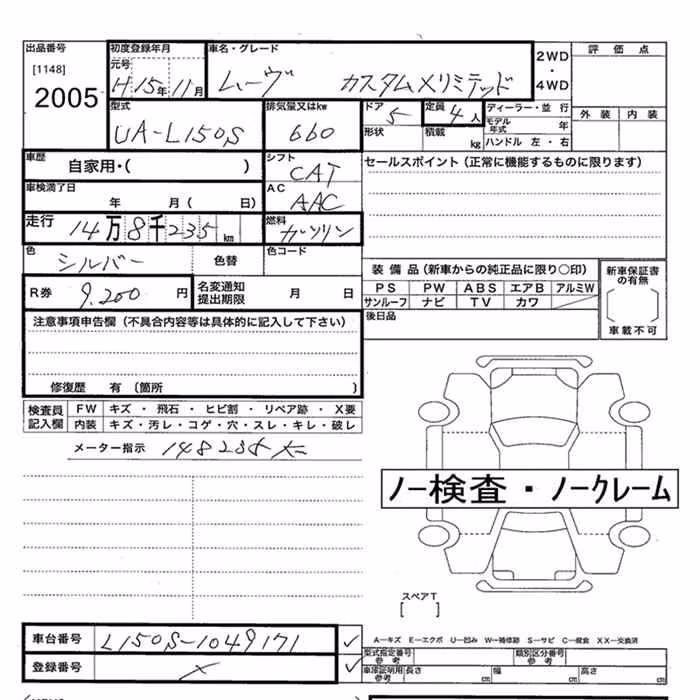 出品番号 初度登録年月 車名・グレード 2WD・4WD 評価点
[1148] 元号 H15年11月 ムーヴ カスタムXリミテッド
2005
型式 排気量又はkw ドア 5 定員 4人 ディーラー・並行 外装 内装
UA-L150S 660 形状 積載 kg モデル年式 年
ハンドル 左・右
車歴 自家用・( ) シフト CAT セールスポイント(正常に機能するものに限ります)
車検満了日 年 月( 日) AC AAC
走行 14万8千235km 燃料 ガソリン
色 シルバー 色替 色コード
装備品(新車からの純正品に限り○印) 新車保証書の有無
R券 9.200円 名変通知提出期限 月 日 PS PW ABS エアB アルミW
サンルーフ ナビ TV カワ
後日品 車載不可
注意事項申告欄(不具合内容等は具体的に記入して下さい)
修復歴 有(箇所 )
検査員記入欄 FW キズ・飛石・ヒビ割・リペア跡・X要
内装 キズ・汚レ・コゲ・穴・スレ・キレ・破レ
メーター指示 148235
ノー検査・ノークレーム
スペアT
[ ]
車台番号 L150S-1049171 ✓ A―キズ E―エクボ U―凹み W―補修跡 S―サビ C―腐食 XX―交換済
型式指定番号 参考 類別区分番号 参考
登録番号 × ✓ 車庫証明用 参考 長さ cm 幅 cm 高さ cm